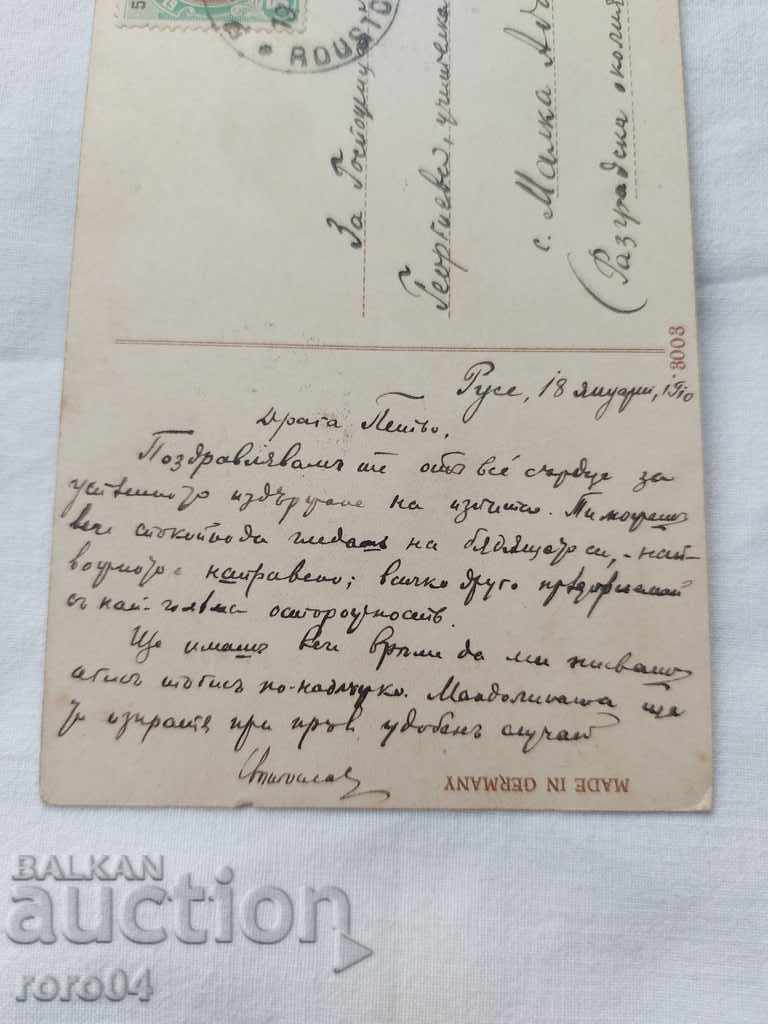 5
19
ROUSTC
За Госпощиц
Георгиева, учителка
с. Малка
(Разградска околия
3003
Русе, 18 януари, 1910
Драга Петьо,
Поздравлявамъ те отъ всё сърдце за
успешното издържане на изпита. Ти можешъ
вече спокойно да гледашъ на бѫдѫщето си, - най-
важното е направено; всичко друго предприемай
съ най-голѣма осторожность.
Ще имашъ вече врѣме да ми пишешъ
а по-надълъго. Мандолината ще
ти изпратя при пръв удобенъ случай
MADE IN GERMANY
BALKAN
auction
roro04